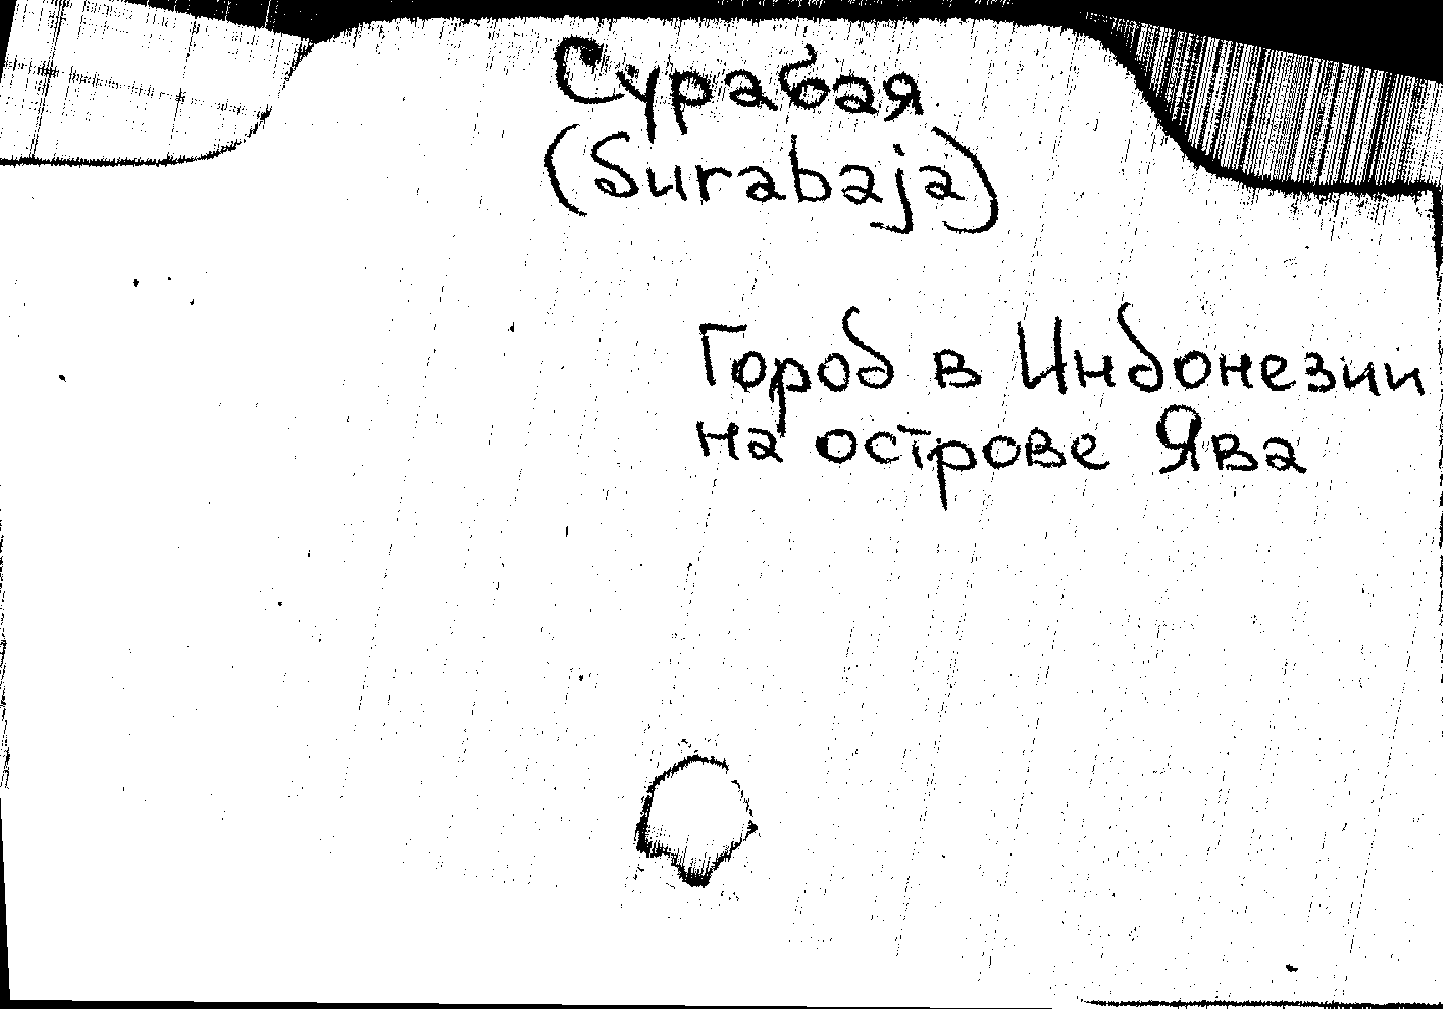 Сурабая
(Surabaja)
Город в Индонезии
на острове Ява